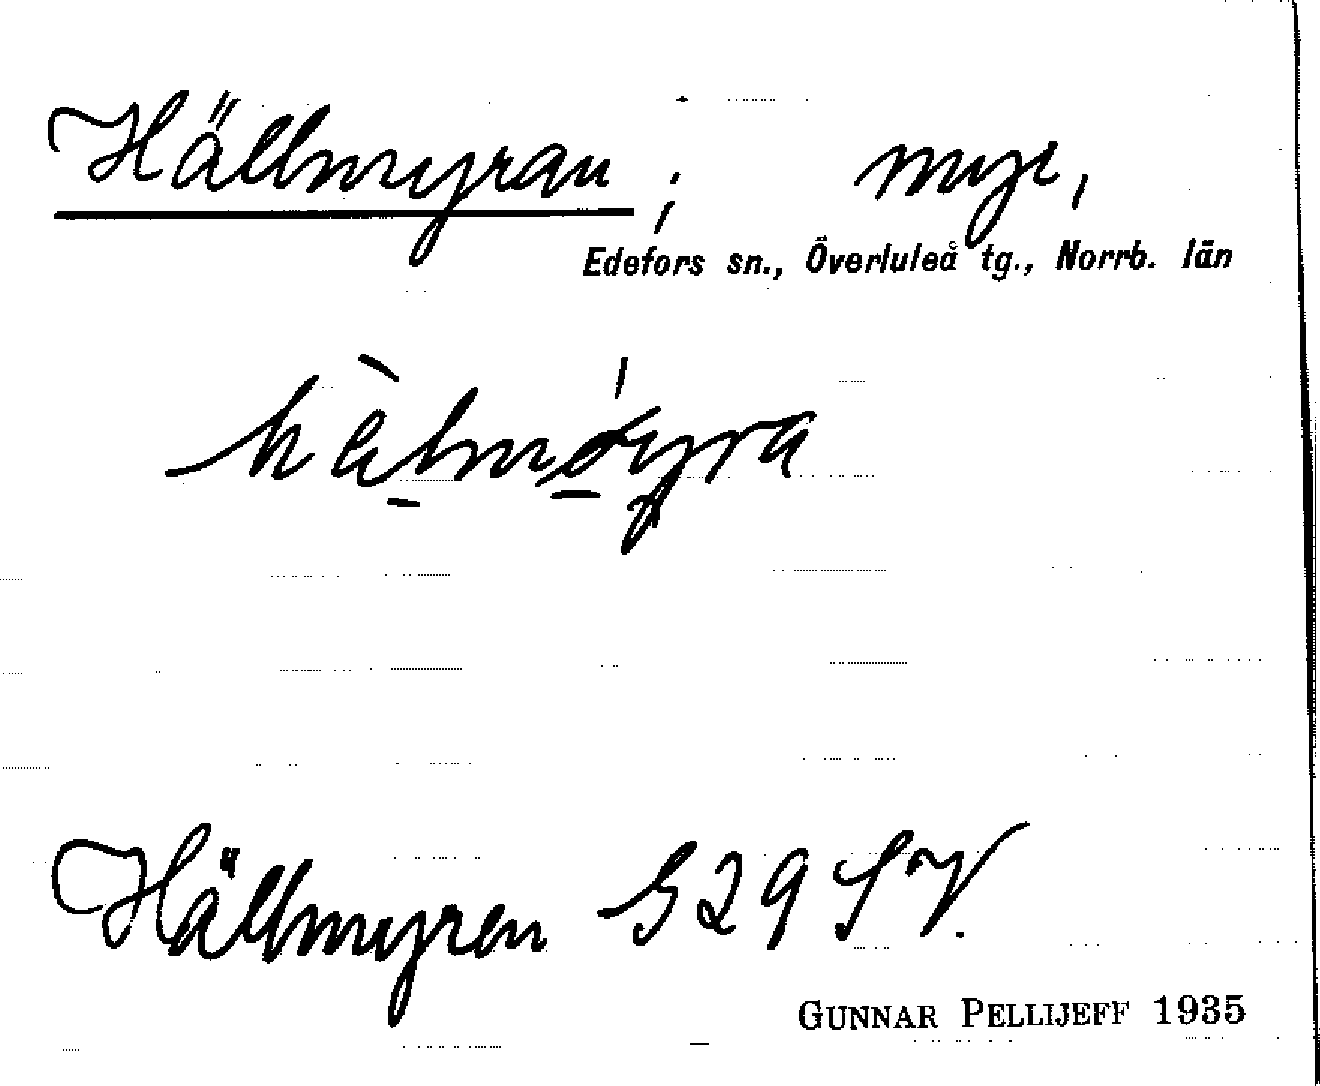 Hällmyran, myr,
Edefors sn., Överluleå tg., Norrb. län
Hällmyren S29 SV.
GUNNAR PELLIJEFF 1935